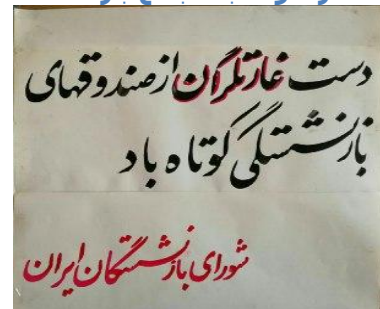 دست غارتگران از صندوقهای
بازنشستگی کوتاه باد
شورای بازنشستگان ایران